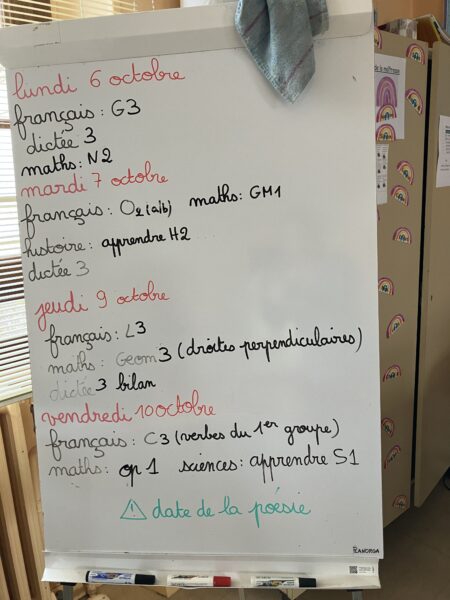 lundi 6 octobre
français : G3
dictée 3
maths : N2
mardi 7 octobre
français : O2 (a/b) maths : GM1
histoire : apprendre H2
dictée 3
jeudi 9 octobre
français : L3
maths : Geom 3 (droites perpendiculaires)
dictée 3 bilan
vendredi 10 octobre
français : C3 (verbes du 1er groupe)
maths : op 1 sciences : apprendre S1
⚠ date de la poésie
PLANORGA